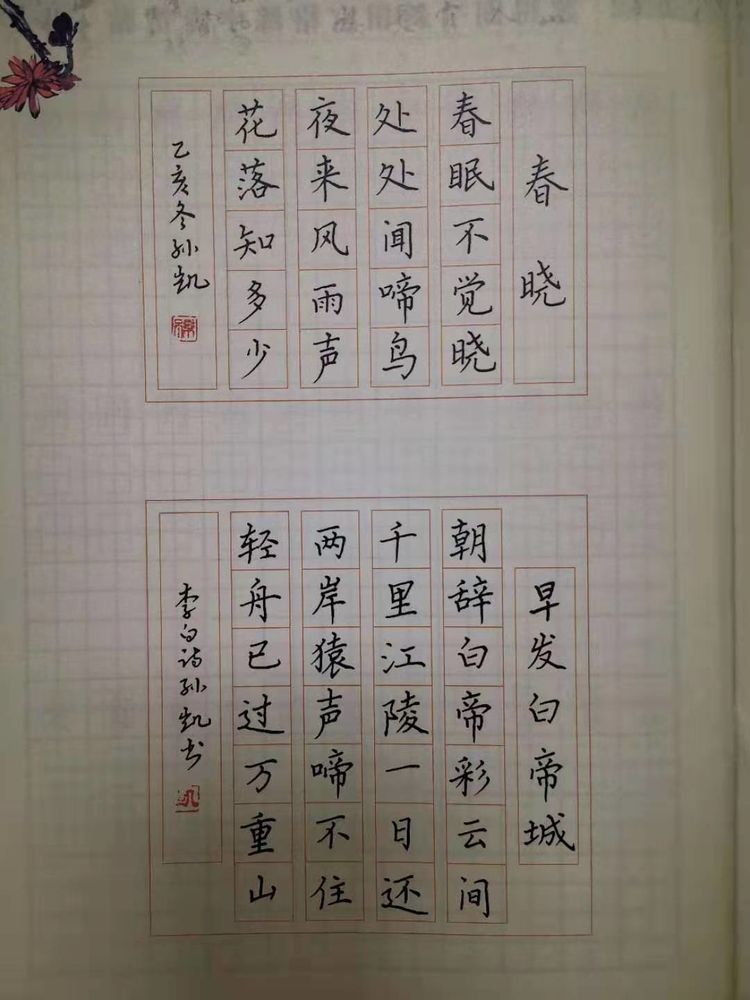 春晓
春眠不觉晓
处处闻啼鸟
夜来风雨声
花落知多少
乙亥冬孙凯
早发白帝城
朝辞白帝彩云间
千里江陵一日还
两岸猿声啼不住
轻舟已过万重山
李白诗孙凯书